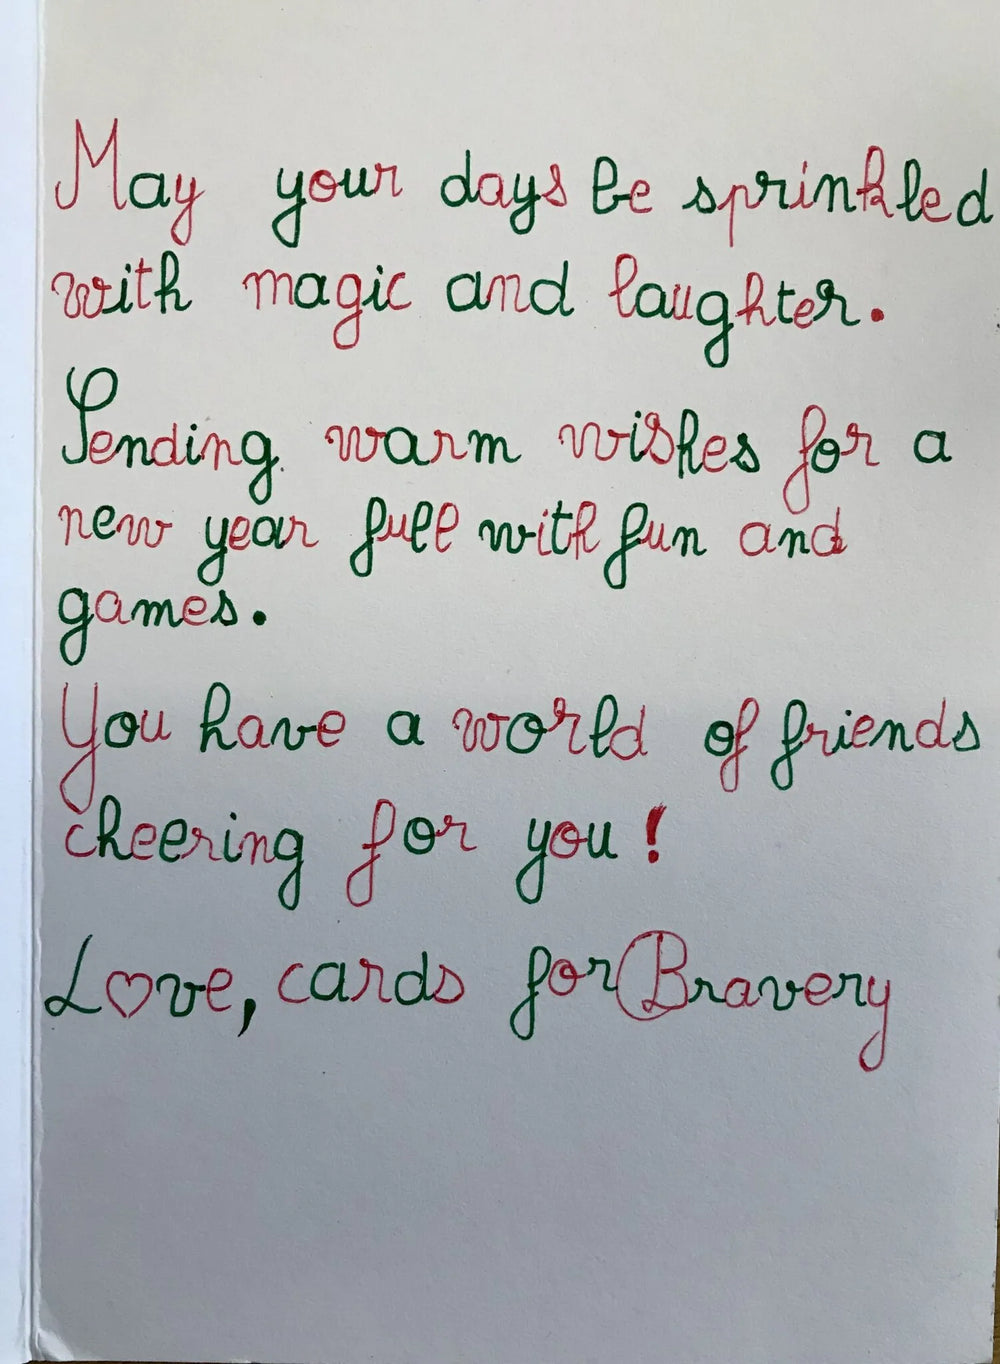 May your days be sprinkled
with magic and laughter.
Sending warm wishes for a
new year full with fun and
games.
You have a world of friends
cheering for you!
L♡ve, cards for Bravery